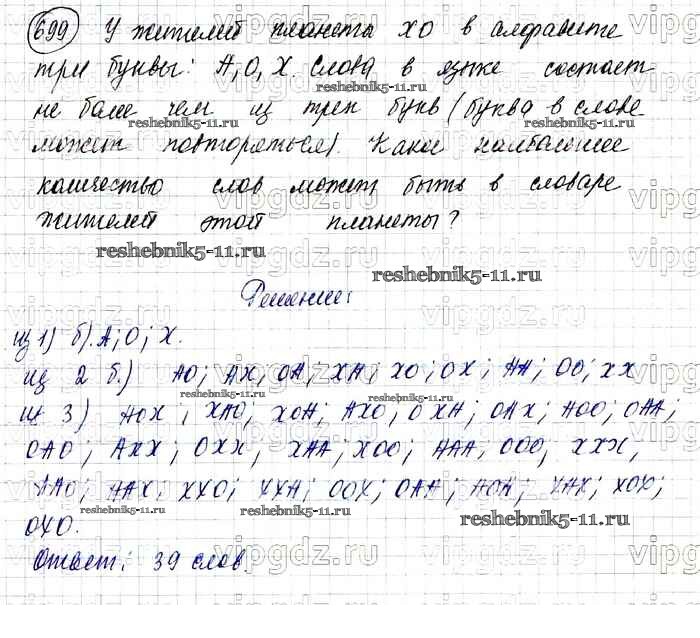 699 У жителей планеты ХО в алфавите
три буквы: А, О, Х. Слова в языке состоят
не более чем из трех букв (буква в слове
может повторяться). Какое наибольшее
количество слов может быть в словаре
жителей этой планеты?
Решение:
из 1) б). А; О; Х.
из 2 б.) АО; АХ; ОА; ХА; ХО; ОХ; АА; ОО; ХХ
из 3) АОХ; ХАО; ХОА; АХО; ОХА; ОАХ; АОО; ОАА;
ОАО; АХХ; ОХХ; ХАА; ХОО; ААА; ООО; ХХХ,
ААО; ААХ; ХХО; ХХА; ООХ; ОАА; АОА; ХАХ; ХОХ;
ОХО.
Ответ: 39 слов.
vipgdz.ru
reshebnik5-11.ru